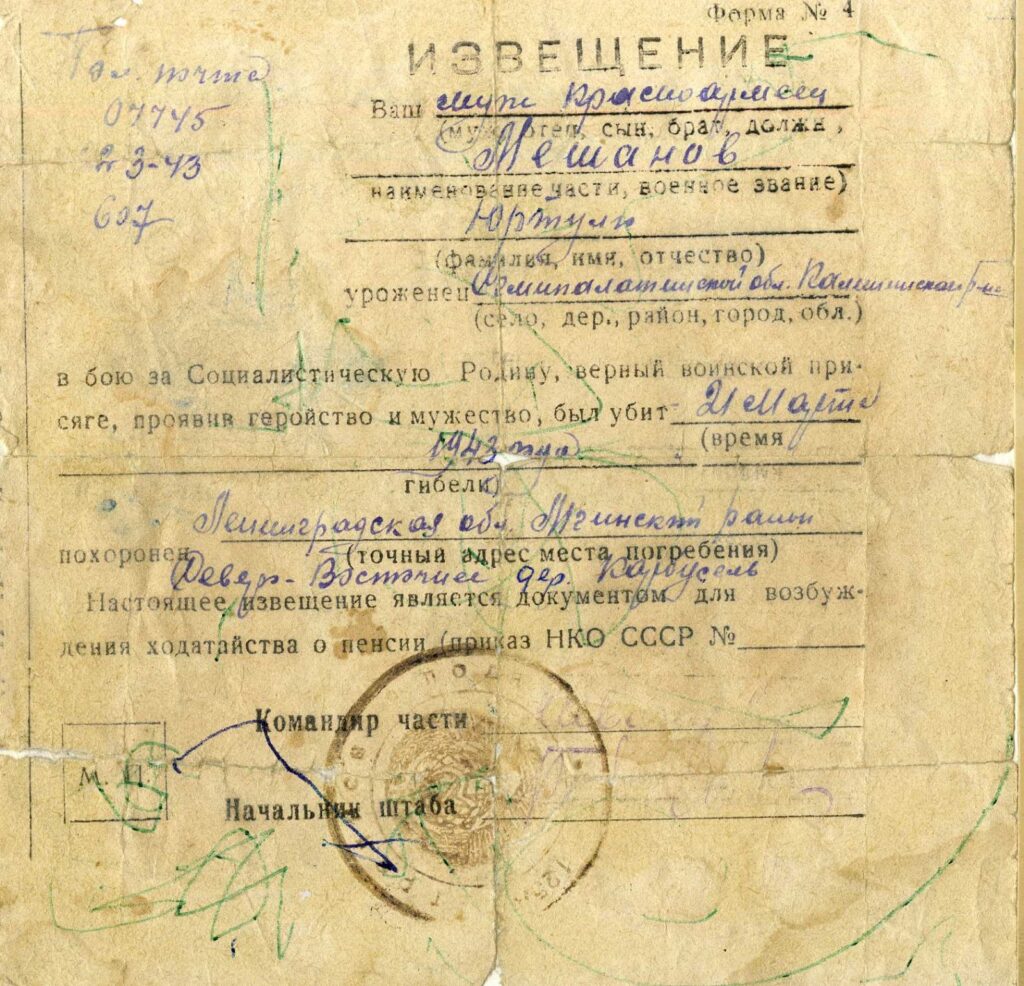 Форма № 4
ИЗВЕЩЕНИЕ
Пол. почта
07745
23-43
607
Ваш муж красноармеец
(муж, отец, сын, брат, должн,
Мешанов
наименование части, военное звание)
Юржули
(фамилия, имя, отчество)
уроженец Семипалатинской обл.
(село, дер., район, город, обл.)
в бою за Социалистическую Родину, верный воинской при-
сяге, проявив геройство и мужество, был убит 21 Марта
(время
1943 года
гибели)
Ленинградская обл. Мгинский район
похоронен (точный адрес места погребения)
Северо-Восточнее дер. Карбусель
Настоящее извещение является документом для возбуж-
дения ходатайства о пенсии (приказ НКО СССР №
Командир части
М. П.
Начальник штаба